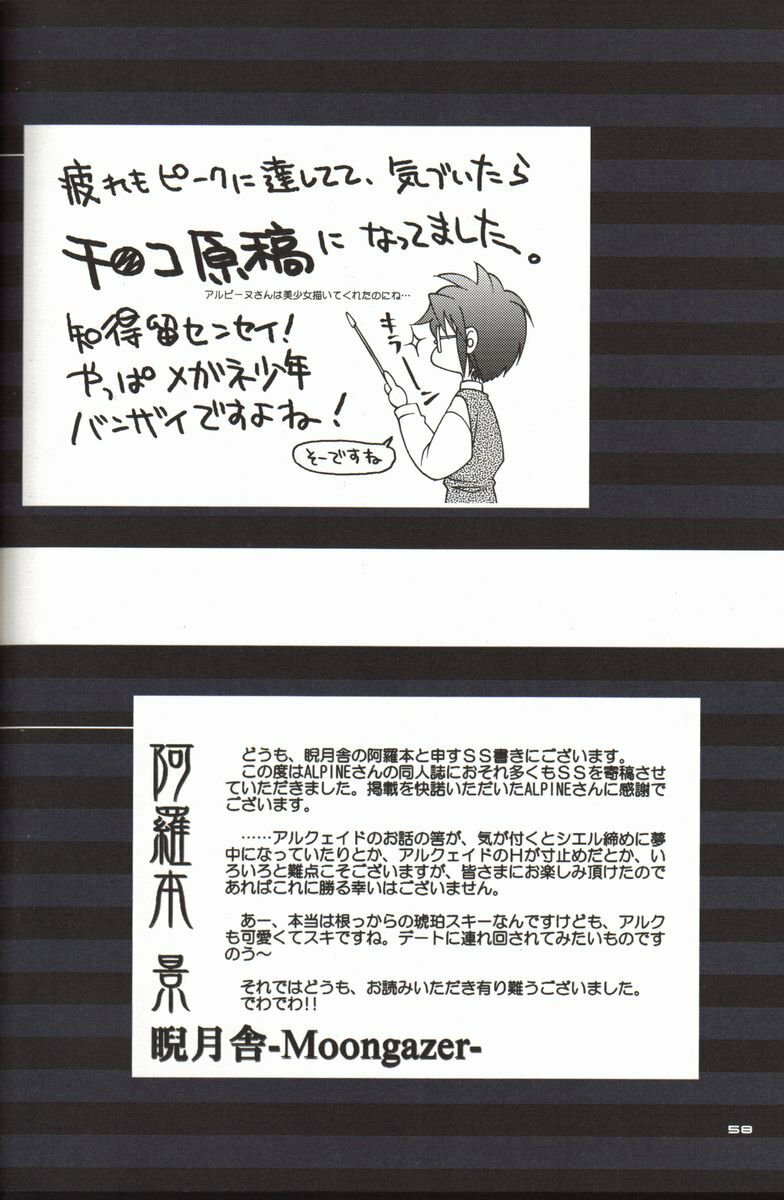 疲れもピークに達してて、気づいたら
チ〇コ原稿になってました。
アルピーヌさんは美少女描いてくれたのにね…
知得留センセイ!
やっぱメガネ少年
バンザイですよね!
キラーン
そーですね
阿羅本 景
どうも、睨月舎の阿羅本と申すSS書きにございます。
この度はALPINEさんの同人誌におそれ多くもSSを寄稿させ
ていただきました。掲載を快諾いただいたALPINEさんに感謝
でございます。
……アルクェイドのお話の筈が、気が付くとシエル締めに夢
中になっていたりとか、アルクェイドのHが寸止めだとか、い
ろいろと難点こそございますが、皆さまにお楽しみ頂けたので
あればこれに勝る幸いはございません。
あー、本当は根っからの琥珀スキーなんですけども、アルク
も可愛くてスキですね。デートに連れ回されてみたいものです
のう～
それではどうも、お読みいただき有り難うございました。
でわでわ!!
睨月舎-Moongazer-
58